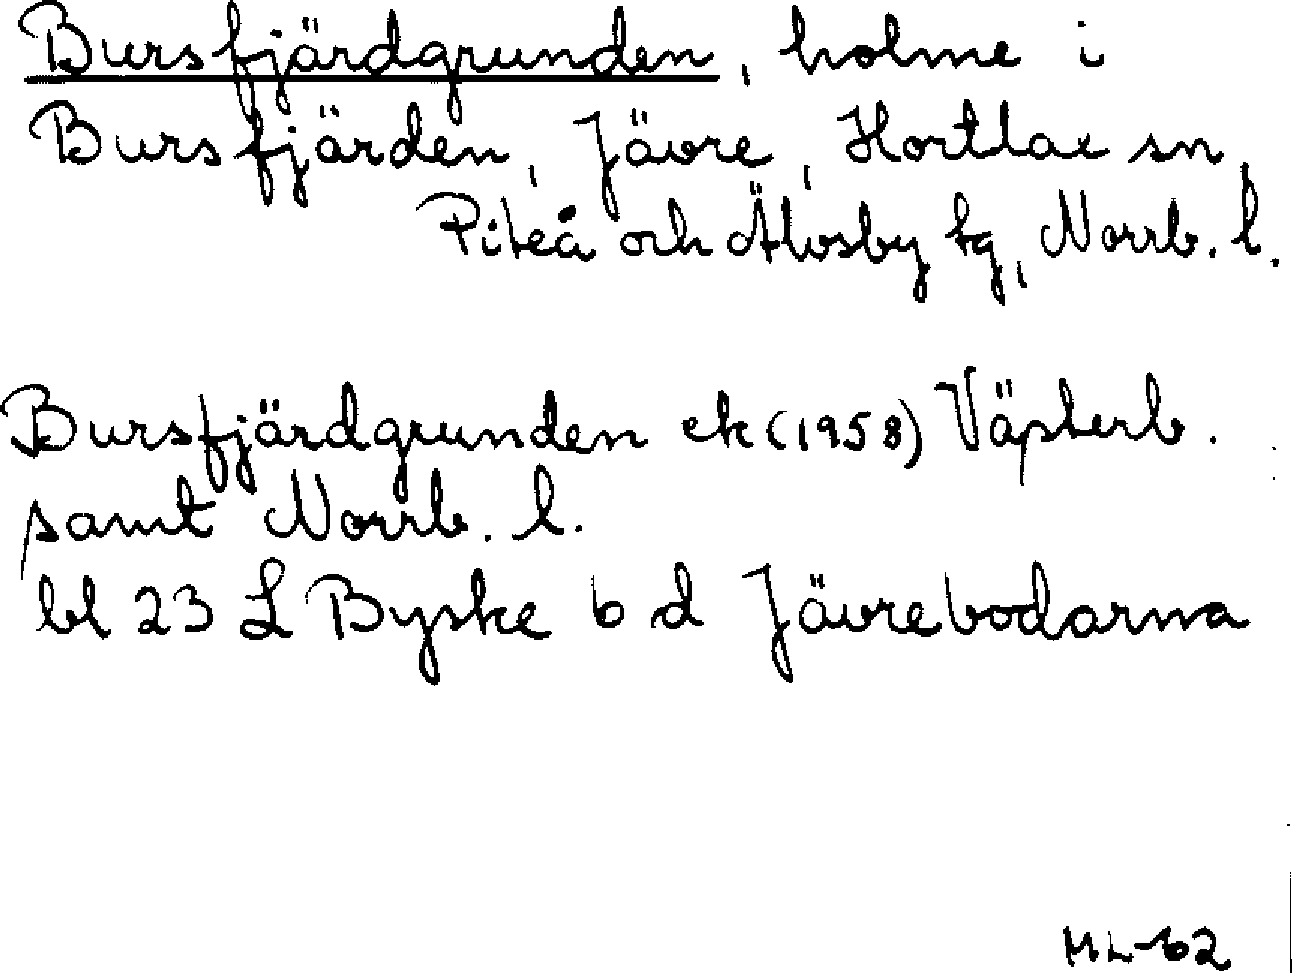 Bursfjärdgrunden, holme i
Bursfjärden, Jävre, Hortlax sn,
Piteå och Älvsby tg, Norrb. l.
Bursfjärdgrunden ek (1958) Västerb.
samt Norrb. l.
bl 23 L Byske 6 d Jävrebodarna
ML-62